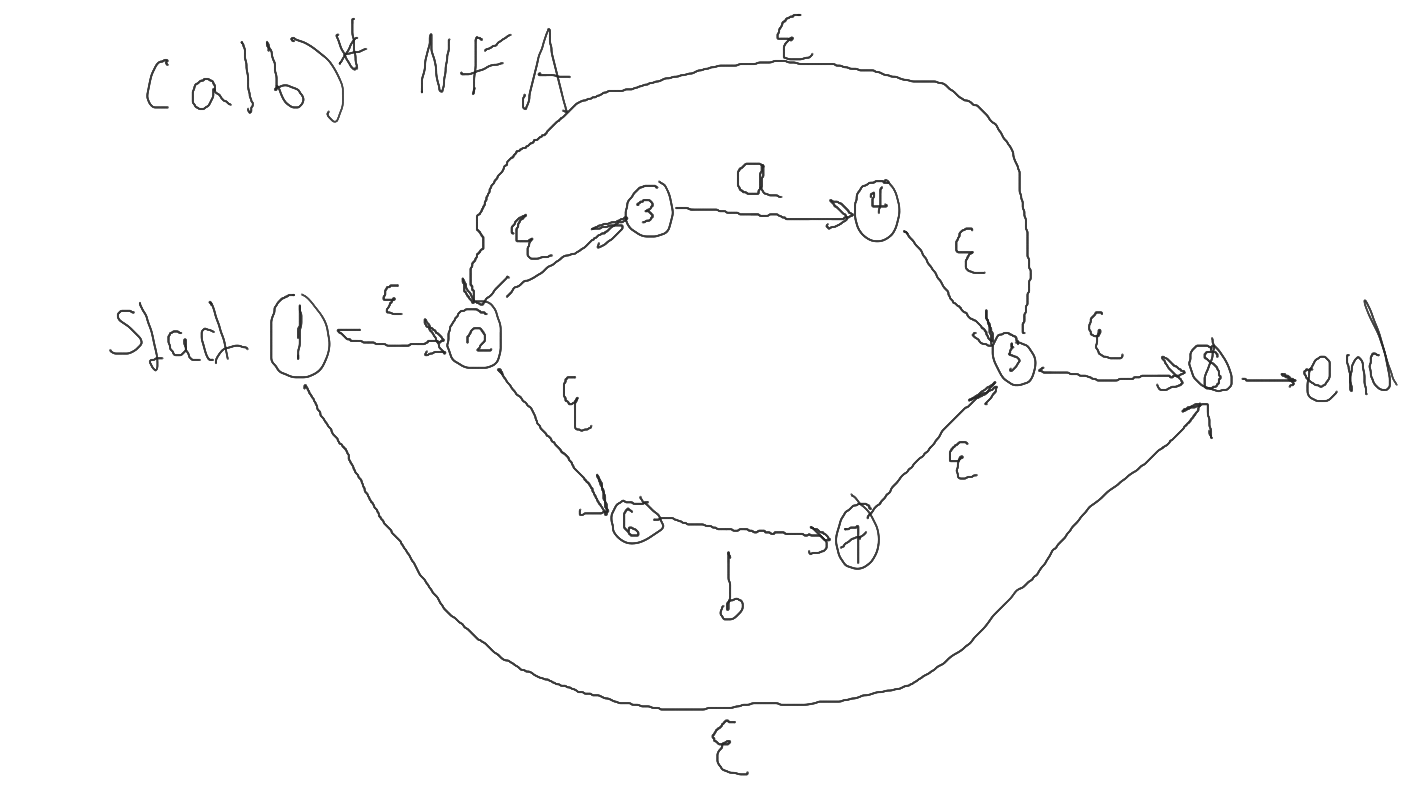 (a|b)* NFA
ε
a
3
4
ε
ε
ε
ε
Start 1 2 5 8 end
ε
ε
6
7
b
ε